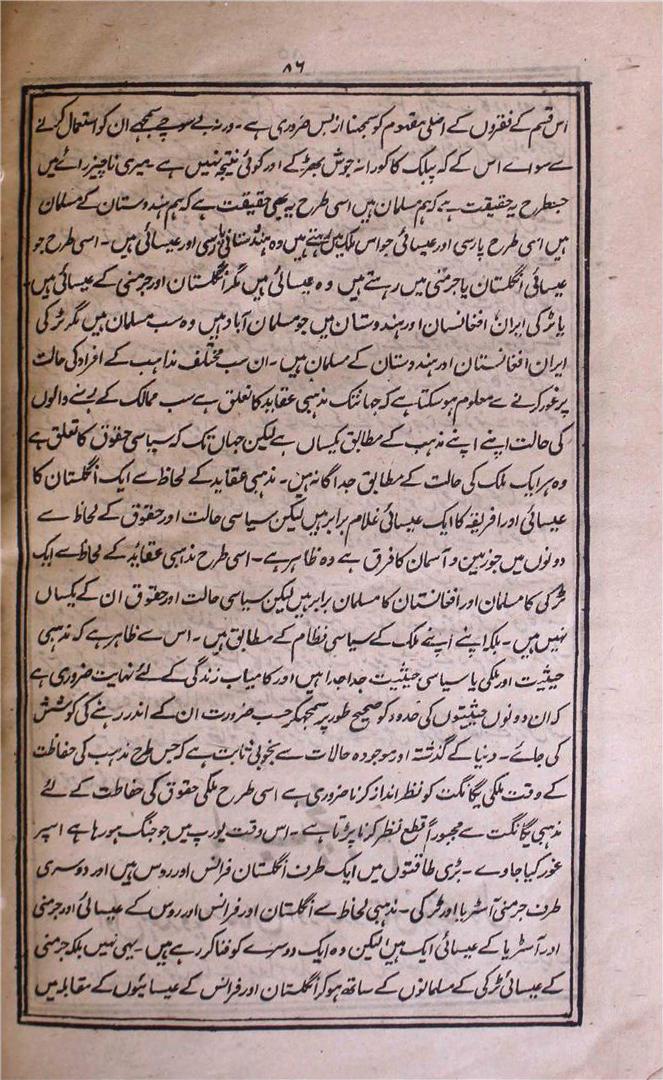 ۸۶
اس قسم کے فقروں کے اصلی مفہوم کو سمجھنا از بس ضروری ہے۔ ورنہ بے سوچے سمجھے ان کو استعمال کرنے
سے سوائے اس کے کہ پبلک کا کورانہ جوش بھڑکے اور کوئی نتیجہ نہیں ہے۔ میری ناچیز رائے میں
جسطرح یہ حقیقت ہے کہ ہم مسلمان ہیں اسی طرح یہ بھی حقیقت ہے کہ ہم ہندوستان کے مسلمان
ہیں اسی طرح پارسی اور عیسائی جو اس ملک میں رہتے ہیں وہ ہندوستانی پارسی اور عیسائی ہیں۔ اسی طرح جو
عیسائی انگلستان یا جرمنی میں رہتے ہیں وہ عیسائی ہیں مگر انگلستان اور جرمنی کے عیسائی ہیں
یا ٹرکی ایران افغانستان اور ہندوستان میں جو مسلمان آباد ہیں وہ سب مسلمان ہیں مگر ٹرکی
ایران افغانستان اور ہندوستان کے مسلمان ہیں۔ ان سب مختلف مذاہب کے افراد کی حالت
پر غور کرنے سے معلوم ہو سکتا ہے کہ جہانتک مذہبی عقاید کا تعلق ہے سب ممالک کے رہنے والوں
کی حالت اپنے اپنے مذہب کے مطابق یکساں ہے لیکن جہاں تک کہ سیاسی حقوق کا تعلق ہے
وہ ہر ایک ملک کی حالت کے مطابق جداگانہ ہیں۔ مذہبی عقاید کے لحاظ سے ایک انگلستان کا
عیسائی اور افریقہ کا ایک عیسائی غلام برابر ہیں لیکن سیاسی حالت اور حقوق کے لحاظ سے
دونوں میں جو زمین و آسمان کا فرق ہے وہ ظاہر ہے۔ اسی طرح مذہبی عقائد کے لحاظ سے ایک
ٹرکی کا مسلمان اور افغانستان کا مسلمان برابر ہیں لیکن سیاسی حالت اور حقوق ان کے یکساں
نہیں ہیں۔ بلکہ اپنے اپنے ملک کے سیاسی نظام کے مطابق ہیں۔ اس سے ظاہر ہے کہ مذہبی
حیثیت اور ملکی یا سیاسی حیثیت جدا جدا ہیں اور کامیاب زندگی کے لئے نہایت ضروری ہے
کہ ان دونوں حیثیتوں کی حدود کو صحیح طور پر سمجھکر حسب ضرورت ان کے اندر رہنے کی کوشش
کی جائے۔ دنیا کے گذشتہ اور موجودہ حالات سے بخوبی ثابت ہے کہ جس طرح مذہب کی حفاظت
کے وقت ملکی یگانگت کو نظر انداز کرنا ضروری ہے اسی طرح ملکی حقوق کی حفاطت کے لئے
مذہبی یگانگت سے مجبوراً قطع نظر کرنا پڑتا ہے۔ اس وقت یورپ میں جو جنگ ہو رہا ہے اسپر
غور کیا جاوے۔ بڑی طاقتوں میں ایک طرف انگلستان فرانس اور روس ہیں اور دوسری
طرف جرمنی آسٹریا اور ٹرکی۔ مذہبی لحاظ سے انگلستان اور فرانس اور روس کے عیسائی اور جرمنی
اور آسٹریا کے عیسائی ایک ہیں لیکن وہ ایک دوسرے کو فنا کر رہے ہیں۔ یہی نہیں بلکہ جرمنی
کے عیسائی ٹرکی کے مسلمانوں کے ساتھ ہو کر انگلستان اور فرانس کے عیسائیوں کے مقابلہ میں